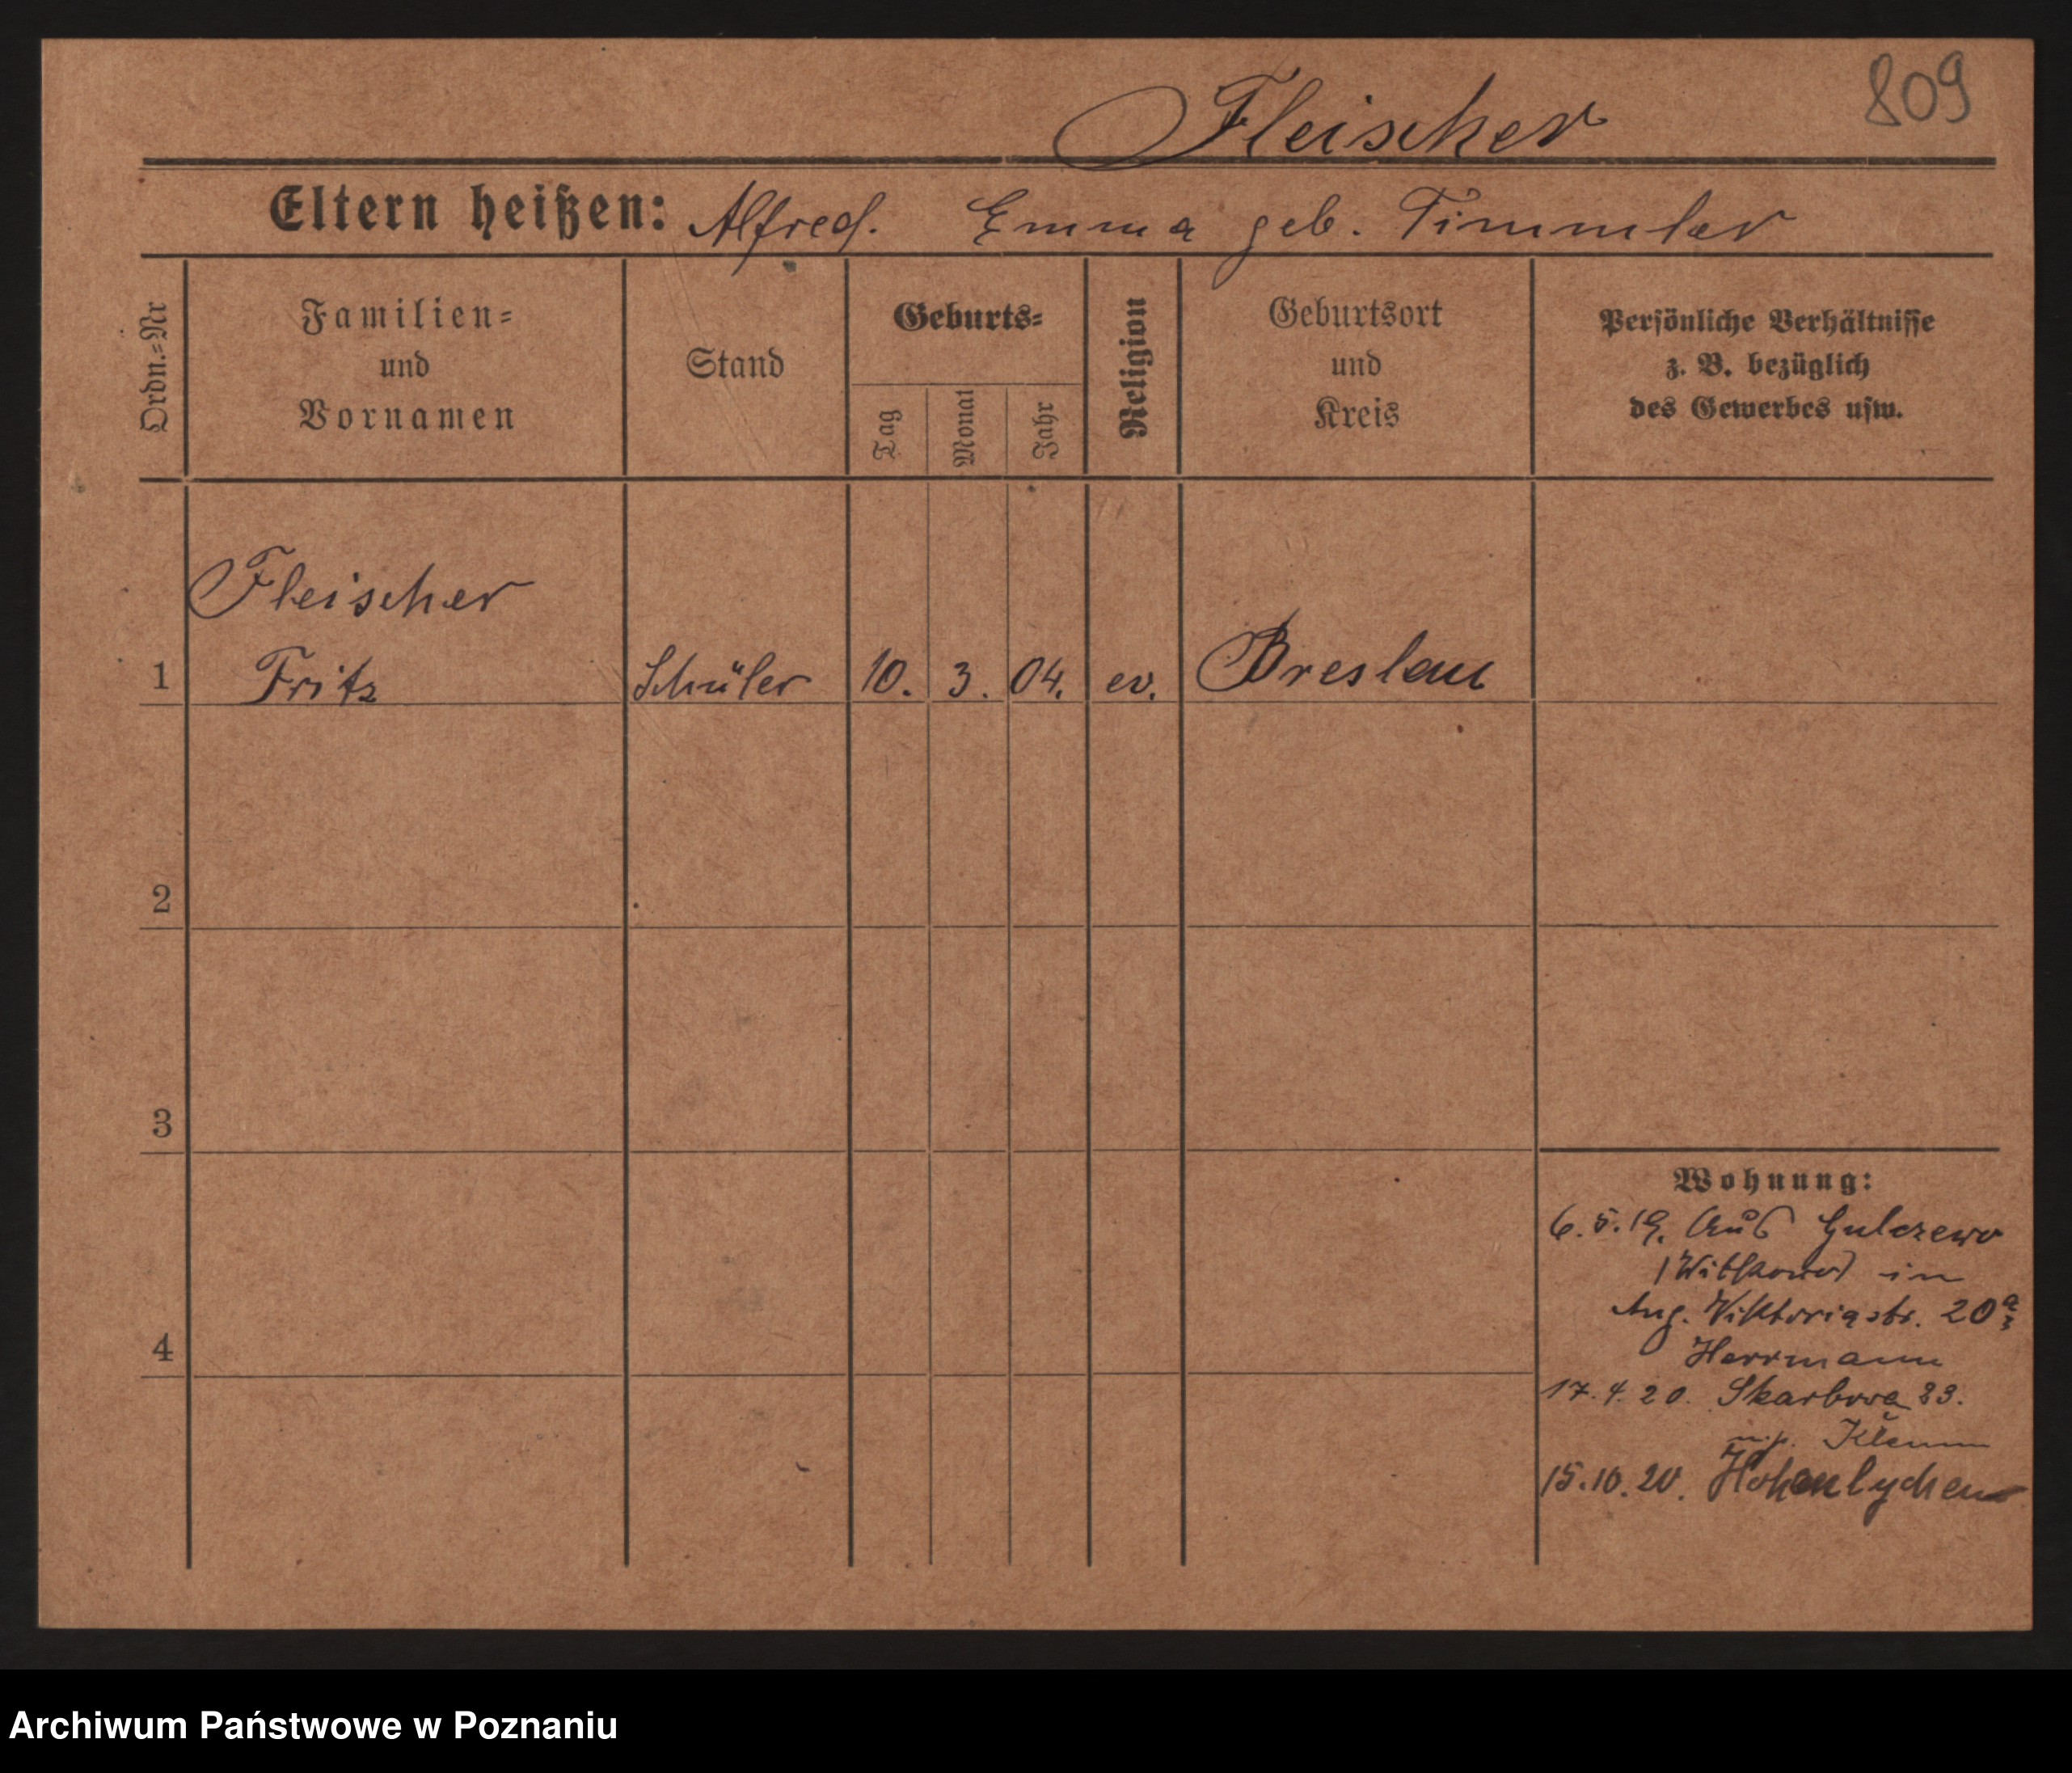 809
Fleischer
Eltern heißen: Alfred. Emma geb. Timmler
Ordn.=Nr
Familien=
und
Vornamen
Stand
Geburts=
Tag
Monat
Jahr
Religion
Geburtsort
und
Kreis
Persönliche Verhältnisse
z. B. bezüglich
des Gewerbes usw.
Fleischer
1 Fritz Schüler 10. 3. 04. ev. Breslau
2
3
4
Wohnung:
6.5.19. Aus Gulczewo
(Witkowo) in
Aug. Viktoriastr. 20a
Herrmann
17.4.20. Skarbowa 23.
Klemm
15.10.20. Hohenlychen
Archiwum Państwowe w Poznaniu